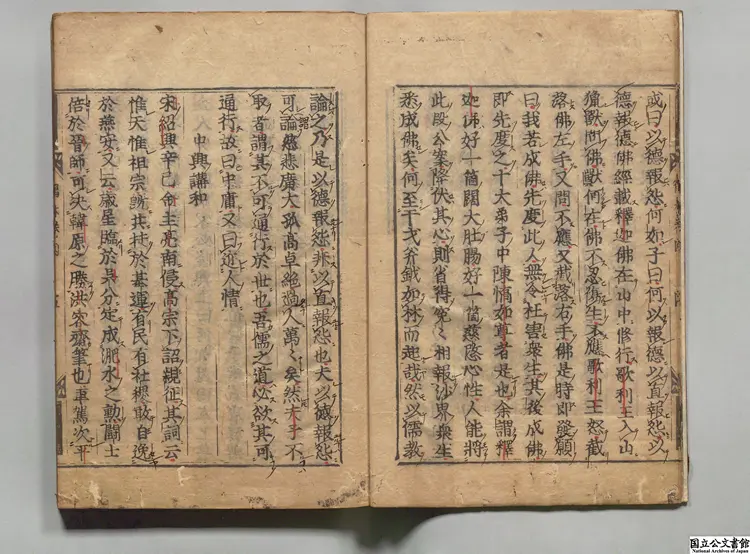 或曰以德報怨何如子曰何以報德以直報怨以
德報德佛經載釋迦佛在山中修行歌利王入山
獵獸問佛獸何在佛不忍傷生不應歌利王怒截
落佛左手又問不應又截落右手佛是時即發願
曰我若成佛先度此人無令枉害衆生其後成佛
即先度之十大弟子中陳憍如尊者是也余謂釋
迦佛好一箇闊大肚腸好一箇慈隂心性人能將
此段公案降伏其心則省得寃〻相報沙界衆生
悉成佛矣何至干戈鈇鉞如林而起哉然以儒教
論之乃是以德報怨非以直報怨也夫以德報怨
可論慈悲廣大孤高卓絶過人萬〻矣然夫子不
取者謂其不可通行於世也吾儒之道必欲其可
通行故曰中庸又曰近人情
中興講和
宋紹興辛巳金主亮南侵高宗下詔親征其詞云
惟天惟祖宗既共扶於基運有民有社稷敢自逸
於燕安又云歲星臨於吳分定成淝水之勲鬪士
倍於晉師可決韓原之勝洪容齋筆也車駕次平
国立公文書館
National Archives of Japan